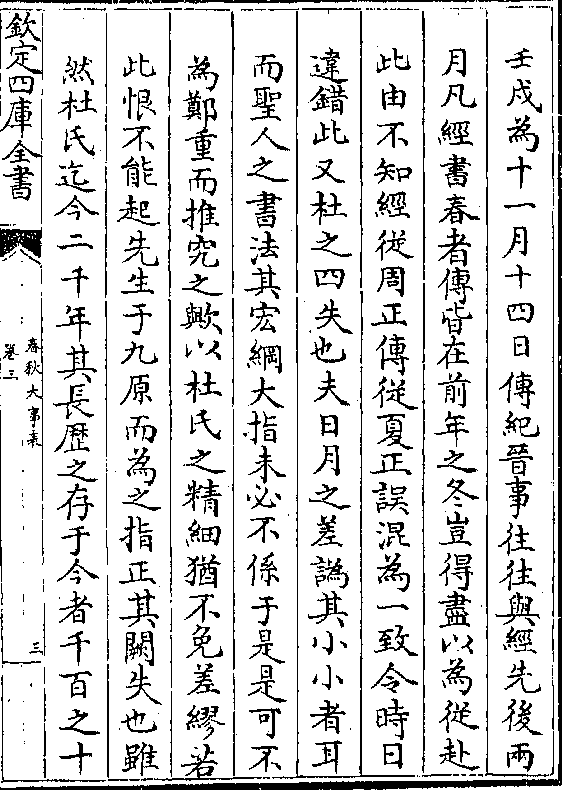 壬戌為十一月十四日傳紀晉事往往與經先後兩
月凡經書春者傳皆在前年之冬豈得盡以為從赴
此由不知經從周正傳從夏正誤混為一致令時日
違錯此又杜之四失也夫日月之差譌其小小者耳
而聖人之書法其宏綱大指未必不係于是是可不
為鄭重而推究之歟以杜氏之精細猶不免差繆若
此恨不能起先生于九原而為之指正其闕失也雖
然杜氏迄今二千年其長歴之存于今者千百之十
欽定四庫全書
春秋大事表
卷三
三